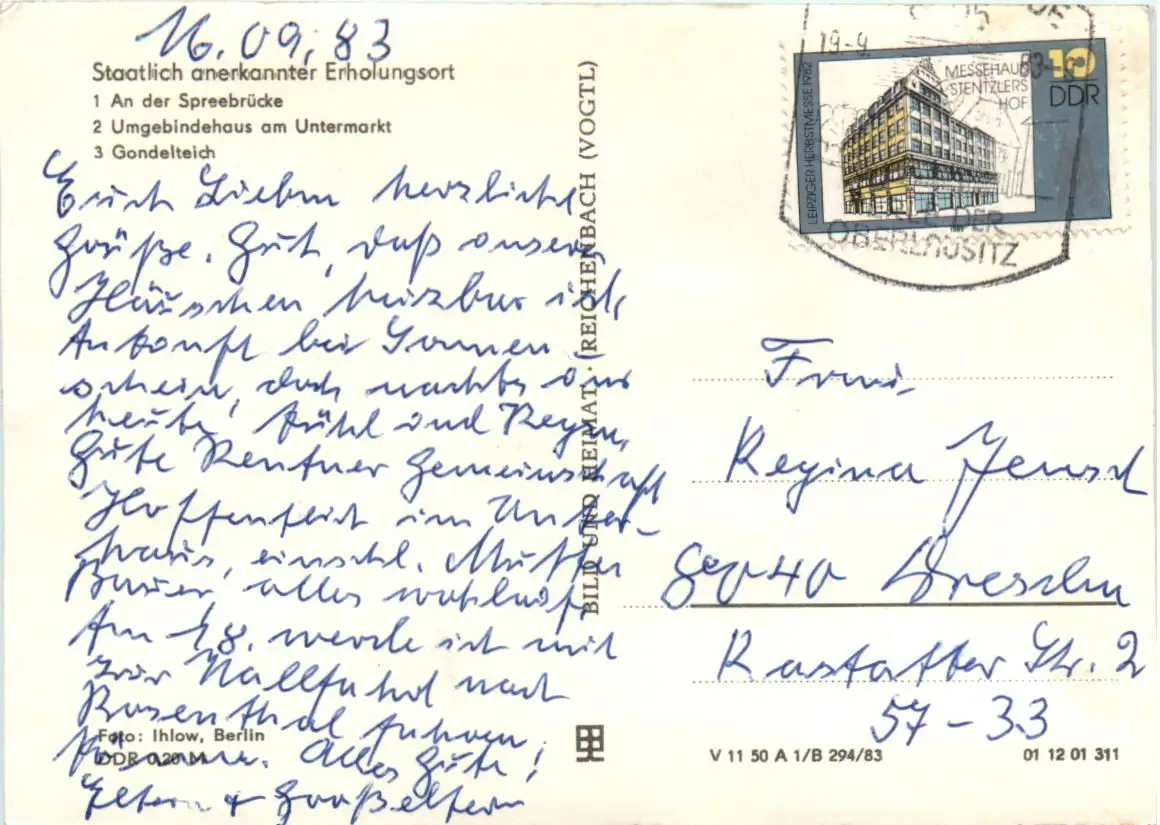 16.09.83
Staatlich anerkannter Erholungsort
1 An der Spreebrücke
2 Umgebindehaus am Untermarkt
3 Gondelteich
Euch Lieben herzliche
Grüße. Gut, daß unser
Häuschen heizbar ist,
Ankunft bei Sonnen
schein, doch nachts und
heute kühl und Regen,
Gute Rentner Gemeinschaft
Hoffentlich im Unter-
haus, einschl. Mutter
alles wohlauf.
Am 18. werde ich mit
zur Wallfahrt nach
Rosenthal fahren
können. Alles Gute!
Eltern + Großeltern
Foto: Ihlow, Berlin
DDR 0,20 M
BILD UND HEIMAT · (REICHENBACH (VOGTL)
19-9.
83
DER
OBERLAUSITZ
LEIPZIGER HERBSTMESSE 1982
MESSEHAUS
STENTZLERS
HOF
10
DDR
Regina
8040 Dresden
Rastatter Str. 2
57-33
V 11 50 A 1/B 294/83
01 12 01 311